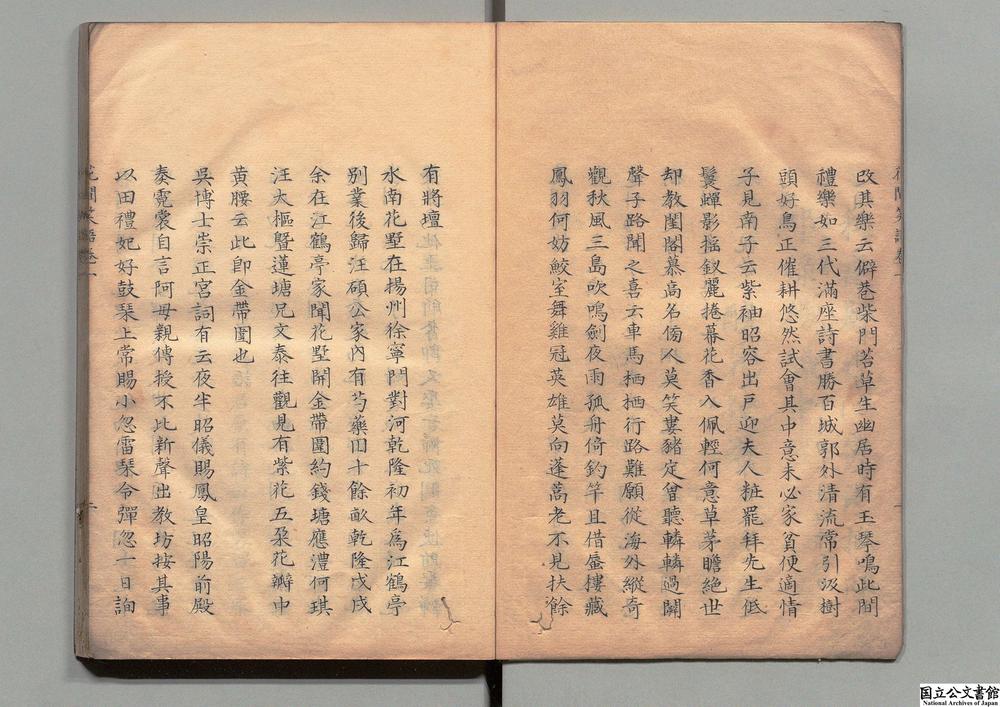 改其樂云僻巷柴門荅草生幽居時有玉琴鳴此間
禮樂如三代滿座詩書勝百城郭外清流常引汲樹
頭好鳥正催耕悠然試會其中意未必家貧便適情
子見南子云紫袖昭容出戶迎夫人粧罷拜先生低
鬟蟬影搖釵麗捲幕花香入佩輕何意草茅瞻絕世
却教閨閣慕高名傍人莫笑婁豬定曾聽轔轔過闕
聲子路聞之喜云車馬栖栖行路難願從海外縱奇
觀秋風三島吹鳴劍夜雨孤舟倚釣竿且借蜃樓藏
鳳羽何妨鮫室舞雞冠英雄莫向蓬蒿老不見扶餘
有將壇
水南花墅在揚州徐寧門對河乾隆初年為江鶴亭
別業後歸汪碩公家內有芍藥田十餘畝乾隆戊戌
余在江鶴亭家聞花墅開金帶圍約錢塘應澧何琪
汪大樞暨蓮塘兄文泰往觀見有紫花五朶花瓣中
黃腰云此卽金帶圍也
吳博士崇正宮詞有云夜半昭儀賜鳳皇昭陽前殿
奏霓裳自言阿母親傳授不比新聲出教坊按其事
以田禮妃好鼓琴上常賜小忽雷琴令彈忽一日詢
花間笑語卷一
国立公文書館
National Archives of Japan